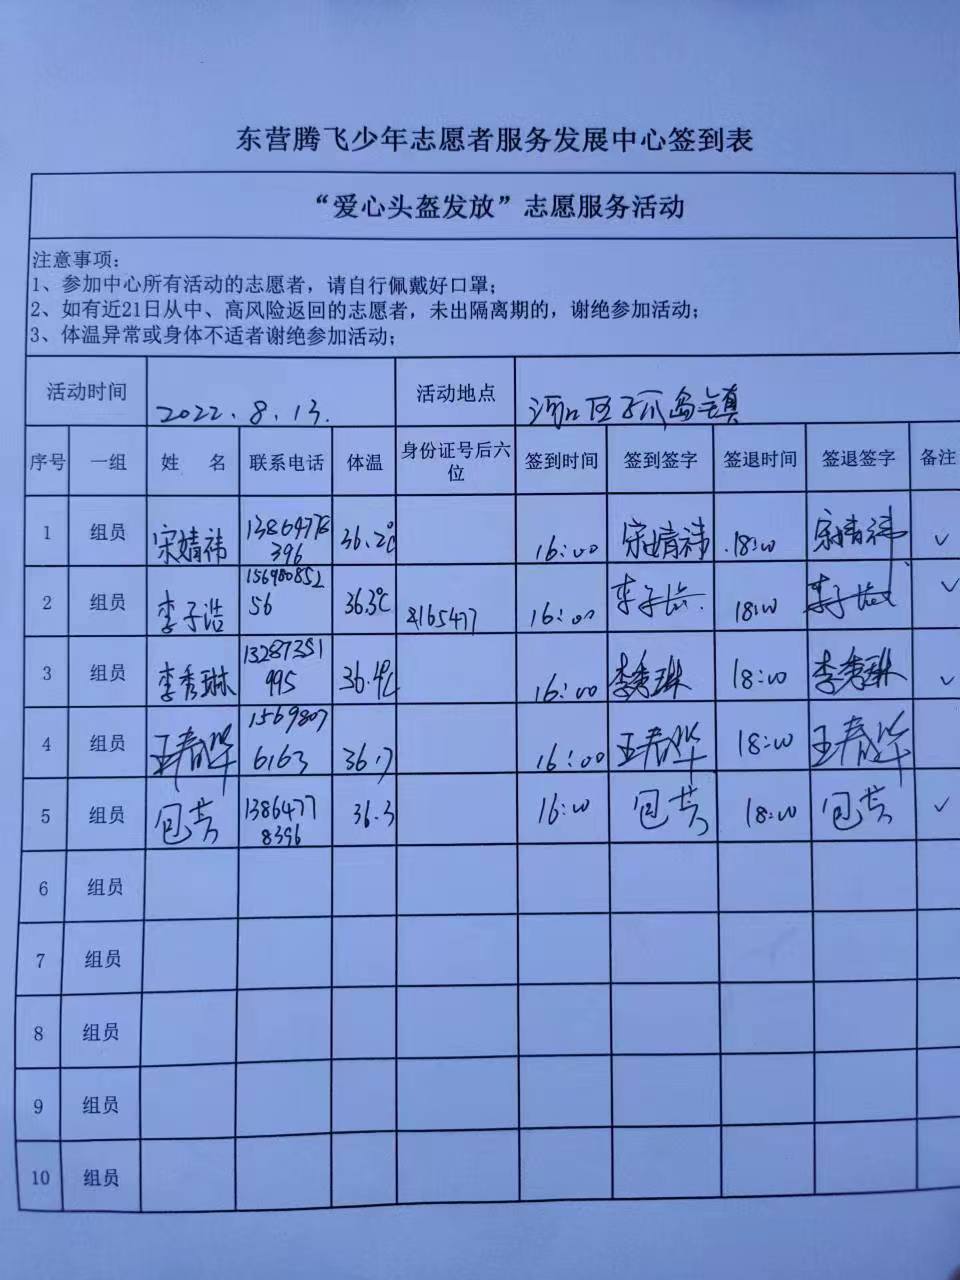 东营腾飞少年志愿者服务发展中心签到表
“爱心头盔发放”志愿服务活动
注意事项：
1、参加中心所有活动的志愿者，请自行佩戴好口罩；
2、如有近21日从中、高风险返回的志愿者，未出隔离期的，谢绝参加活动；
3、体温异常或身体不适者谢绝参加活动；
活动时间 2022.8.13. 活动地点 河口区孤岛镇
序号 一组 姓 名 联系电话 体温 身份证号后六位 签到时间 签到签字 签退时间 签退签字 备注
1 组员 宋婧祎 36.2℃ 16:00 宋婧祎 18:00 宋婧祎 ✓
2 组员 李子浩 15698085256 36.3℃ 165477 16:00 李子浩 18:00 李子浩 ✓
3 组员 李秀琳 13287351995 36.4℃ 16:00 李秀琳 18:00 李秀琳 ✓
4 组员 王春华 15698076163 36.7 16:00 王春华 18:00 王春华
5 组员 包芸 13864778396 36.3 16:00 包芸 18:00 包芸 ✓
6 组员
7 组员
8 组员
9 组员
10 组员